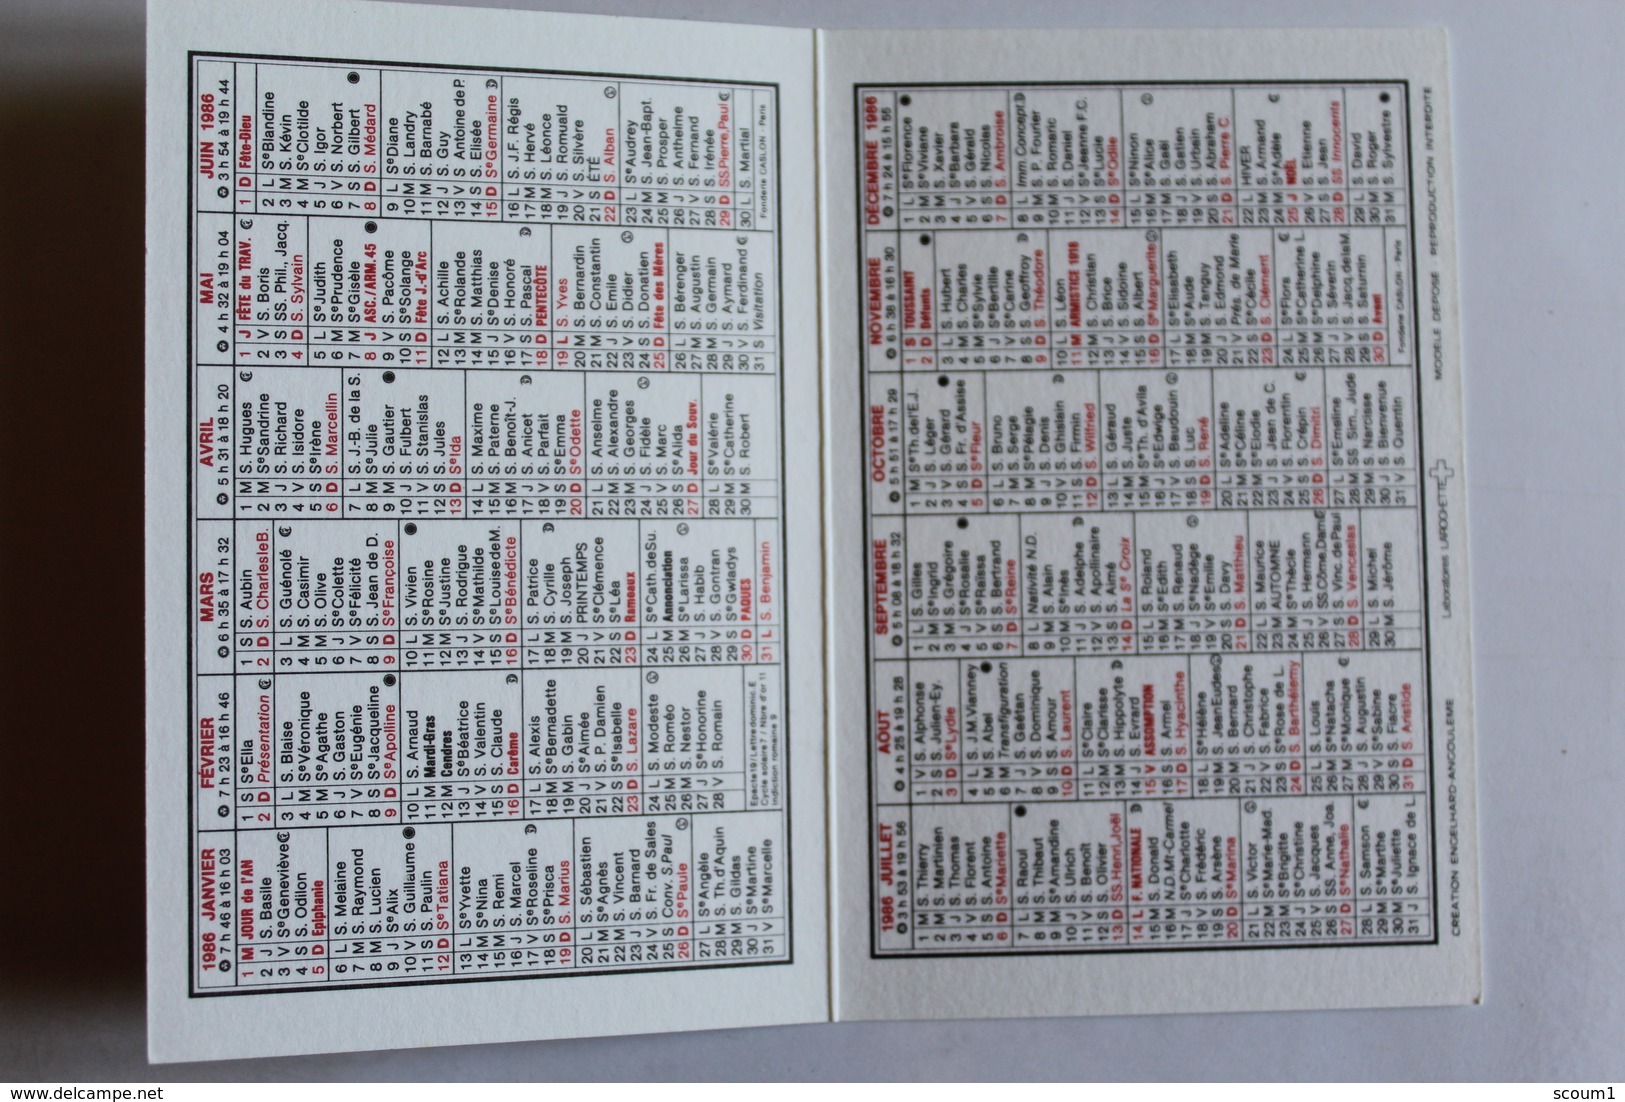 1986 JANVIER
7 h 46 à 16 h 03
1 M JOUR de l'AN
2 J S. Basile
3 V Sᵉ Geneviève
4 S S. Odilon
5 D Epiphanie
6 L S. Melaine
7 M S. Raymond
8 M S. Lucien
9 J Sᵉ Alix
10 V S. Guillaume
11 S S. Paulin
12 D Sᵉ Tatiana
13 L Sᵉ Yvette
14 M Sᵉ Nina
15 M S. Remi
16 J S. Marcel
17 V Sᵉ Roseline
18 S Sᵉ Prisca
19 D S. Marius
20 L S. Sébastien
21 M Sᵉ Agnès
22 M S. Vincent
23 J S. Barnard
24 V S. Fr. de Sales
25 S Conv. S. Paul
26 D Sᵉ Paule
27 L Sᵉ Angèle
28 M S. Th. d'Aquin
29 M S. Gildas
30 J Sᵉ Martine
31 V Sᵉ Marcelle
FÉVRIER
7 h 23 à 16 h 46
1 S Sᵉ Ella
2 D Présentation
3 L S. Blaise
4 M Sᵉ Véronique
5 M Sᵉ Agathe
6 J S. Gaston
7 V Sᵉ Eugénie
8 S Sᵉ Jacqueline
9 D Sᵉ Apolline
10 L S. Arnaud
11 M Mardi-Gras
12 M Cendres
13 J Sᵉ Béatrice
14 V S. Valentin
15 S S. Claude
16 D Carême
17 L S. Alexis
18 M Sᵉ Bernadette
19 M S. Gabin
20 J Sᵉ Aimée
21 V S. P. Damien
22 S Sᵉ Isabelle
23 D S. Lazare
24 L S. Modeste
25 M S. Roméo
26 M S. Nestor
27 J Sᵉ Honorine
28 V S. Romain
Epacte 19 / Lettre dominic. E
Cycle solaire 7 / Nbre d'or 11
Indiction romaine 9
MARS
6 h 35 à 17 h 32
1 S S. Aubin
2 D S. Charles le B.
3 L S. Guénolé
4 M S. Casimir
5 M S. Olive
6 J Sᵉ Colette
7 V Sᵉ Félicité
8 S S. Jean de D.
9 D Sᵉ Françoise
10 L S. Vivien
11 M Sᵉ Rosine
12 M Sᵉ Justine
13 J S. Rodrigue
14 V Sᵉ Mathilde
15 S Sᵉ Louise de M.
16 D Sᵉ Bénédicte
17 L S. Patrice
18 M S. Cyrille
19 M S. Joseph
20 J PRINTEMPS
21 V Sᵉ Clémence
22 S Sᵉ Léa
23 D Rameaux
24 L Sᵉ Cath. de Su.
25 M Annonciation
26 M Sᵉ Larissa
27 J S. Habib
28 V S. Gontran
29 S Sᵉ Gwladys
30 D PAQUES
31 L S. Benjamin
AVRIL
5 h 31 à 18 h 20
1 M S. Hugues
2 M Sᵉ Sandrine
3 J S. Richard
4 V S. Isidore
5 S Sᵉ Irène
6 D S. Marcellin
7 L S. J.-B. de la S.
8 M Sᵉ Julie
9 M S. Gautier
10 J S. Fulbert
11 V S. Stanislas
12 S S. Jules
13 D Sᵉ Ida
14 L S. Maxime
15 M S. Paterne
16 M S. Benoît-J.
17 J S. Anicet
18 V S. Parfait
19 S Sᵉ Emma
20 D Sᵉ Odette
21 L S. Anselme
22 M S. Alexandre
23 M S. Georges
24 J S. Fidèle
25 V S. Marc
26 S Sᵉ Alida
27 D Jour du Souv.
28 L Sᵉ Valérie
29 M Sᵉ Catherine
30 M S. Robert
MAI
4 h 32 à 19 h 04
1 J FÊTE du TRAV.
2 V S. Boris
3 S SS. Phil., Jacq.
4 D S. Sylvain
5 L Sᵉ Judith
6 M Sᵉ Prudence
7 M Sᵉ Gisèle
8 J ASC./ARM.45
9 V S. Pacôme
10 S Sᵉ Solange
11 D Fête J.-d'Arc
12 L S. Achille
13 M Sᵉ Rolande
14 M S. Matthias
15 J Sᵉ Denise
16 V S. Honoré
17 S S. Pascal
18 D PENTECÔTE
19 L S. Yves
20 M S. Bernardin
21 M S. Constantin
22 J S. Emile
23 V S. Didier
24 S S. Donatien
25 D Fête des Mères
26 L S. Bérenger
27 M S. Augustin
28 M S. Germain
29 J S. Aymard
30 V S. Ferdinand
31 S Visitation
JUIN 1986
3 h 54 à 19 h 44
1 D Fête-Dieu
2 L Sᵉ Blandine
3 M S. Kévin
4 M Sᵉ Clotilde
5 J S. Igor
6 V S. Norbert
7 S S. Gilbert
8 D S. Médard
9 L Sᵉ Diane
10 M S. Landry
11 M S. Barnabé
12 J S. Guy
13 V S. Antoine de P.
14 S S. Elisée
15 D Sᵉ Germaine
16 L S. J.F. Régis
17 M S. Hervé
18 M S. Léonce
19 J S. Romuald
20 V S. Silvère
21 S ÉTÉ
22 D S. Alban
23 L Sᵉ Audrey
24 M S. Jean-Bapt.
25 M S. Prosper
26 J S. Anthelme
27 V S. Fernand
28 S S. Irénée
29 D SS. Pierre, Paul
30 L S. Martial
Fonderie CASLON - Paris
1986 JUILLET
3 h 53 à 19 h 56
1 M S. Thierry
2 M S. Martinien
3 J S. Thomas
4 V S. Florent
5 S S. Antoine
6 D Sᵉ Mariette
7 L S. Raoul
8 M S. Thibaut
9 M Sᵉ Amandine
10 J S. Ulrich
11 V S. Benoît
12 S S. Olivier
13 D SS. Henri, Joël
14 L F. NATIONALE
15 M S. Donald
16 M N.D. Mt-Carmel
17 J Sᵉ Charlotte
18 V S. Frédéric
19 S S. Arsène
20 D Sᵉ Marina
21 L S. Victor
22 M Sᵉ Marie-Mad.
23 M Sᵉ Brigitte
24 J Sᵉ Christine
25 V S. Jacques
26 S SS. Anne, Joa.
27 D Sᵉ Nathalie
28 L S. Samson
29 M Sᵉ Marthe
30 M Sᵉ Juliette
31 J S. Ignace de L.
AOUT
4 h 25 à 19 h 28
1 V S. Alphonse
2 S S. Julien-Ey.
3 D Sᵉ Lydie
4 L S. J.M. Vianney
5 M S. Abel
6 M Transfiguration
7 J S. Gaétan
8 V S. Dominique
9 S S. Amour
10 D S. Laurent
11 L Sᵉ Claire
12 M Sᵉ Clarisse
13 M S. Hippolyte
14 J S. Evrard
15 V ASSOMPTION
16 S S. Armel
17 D S. Hyacinthe
18 L Sᵉ Hélène
19 M S. Jean Eudes
20 M S. Bernard
21 J S. Christophe
22 V S. Fabrice
23 S Sᵉ Rose de L.
24 D S. Barthélemy
25 L S. Louis
26 M Sᵉ Natacha
27 M Sᵉ Monique
28 J S. Augustin
29 V Sᵉ Sabine
30 S S. Fiacre
31 D S. Aristide
SEPTEMBRE
5 h 08 à 18 h 32
1 L S. Gilles
2 M Sᵉ Ingrid
3 M S. Grégoire
4 J Sᵉ Rosalie
5 V Sᵉ Raïssa
6 S S. Bertrand
7 D Sᵉ Reine
8 L Nativité N.D.
9 M S. Alain
10 M Sᵉ Inès
11 J S. Adelphe
12 V S. Apollinaire
13 S S. Aimé
14 D La Sᵉ Croix
15 L S. Roland
16 M Sᵉ Edith
17 M S. Renaud
18 J Sᵉ Nadège
19 V Sᵉ Emilie
20 S S. Davy
21 D S. Matthieu
22 L S. Maurice
23 M AUTOMNE
24 M Sᵉ Thècle
25 J S. Hermann
26 V SS. Côme, Dam.
27 S S. Vinc. de Paul
28 D S. Venceslas
29 L S. Michel
30 M S. Jérôme
OCTOBRE
5 h 51 à 17 h 29
1 M Sᵉ Th. de l'E.J.
2 J S. Léger
3 V S. Gérard
4 S S. Fr. d'Assise
5 D Sᵉ Fleur
6 L S. Bruno
7 M S. Serge
8 M Sᵉ Pélagie
9 J S. Denis
10 V S. Ghislain
11 S S. Firmin
12 D S. Wilfried
13 L S. Géraud
14 M S. Juste
15 M Sᵉ Th. d'Avila
16 J Sᵉ Edwige
17 V S. Baudouin
18 S S. Luc
19 D S. René
20 L Sᵉ Adeline
21 M Sᵉ Céline
22 M Sᵉ Elodie
23 J S. Jean de C.
24 V S. Florentin
25 S S. Crépin
26 D S. Dimitri
27 L Sᵉ Emeline
28 M SS. Sim., Jude
29 M S. Narcisse
30 J S. Bienvenue
31 V S. Quentin
NOVEMBRE
6 h 38 à 16 h 30
1 S TOUSSAINT
2 D Défunts
3 L S. Hubert
4 M S. Charles
5 M Sᵉ Sylvie
6 J Sᵉ Bertille
7 V Sᵉ Carine
8 S S. Geoffroy
9 D S. Théodore
10 L S. Léon
11 M ARMISTICE 1918
12 M S. Christian
13 J S. Brice
14 V S. Sidoine
15 S S. Albert
16 D Sᵉ Marguerite
17 L Sᵉ Elisabeth
18 M Sᵉ Aude
19 M S. Tanguy
20 J S. Edmond
21 V Prés. de Marie
22 S Sᵉ Cécile
23 D S. Clément
24 L Sᵉ Flora
25 M Sᵉ Catherine L.
26 M Sᵉ Delphine
27 J S. Séverin
28 V S. Jacq. de la M.
29 S S. Saturnin
30 D Avent
Fonderie CASLON - Paris
DÉCEMBRE 1986
7 h 24 à 15 h 55
1 L Sᵉ Florence
2 M Sᵉ Viviane
3 M S. Xavier
4 J Sᵉ Barbara
5 V S. Gérald
6 S S. Nicolas
7 D S. Ambroise
8 L Imm. Concept.
9 M S. P. Fourier
10 M S. Romaric
11 J S. Daniel
12 V Sᵉ Jeanne F.C.
13 S Sᵉ Lucie
14 D Sᵉ Odile
15 L Sᵉ Ninon
16 M Sᵉ Alice
17 M S. Gaël
18 J S. Gatien
19 V S. Urbain
20 S S. Abraham
21 D S. Pierre C.
22 L HIVER
23 M S. Armand
24 M Sᵉ Adèle
25 J NOËL
26 V S. Etienne
27 S S. Jean
28 D SS. Innocents
29 L S. David
30 M S. Roger
31 M S. Sylvestre
CREATION ENGELHARD-ANGOULÈME
Laboratoires LAROCHETTE
MODÈLE DÉPOSÉ REPRODUCTION INTERDITE
scoum1